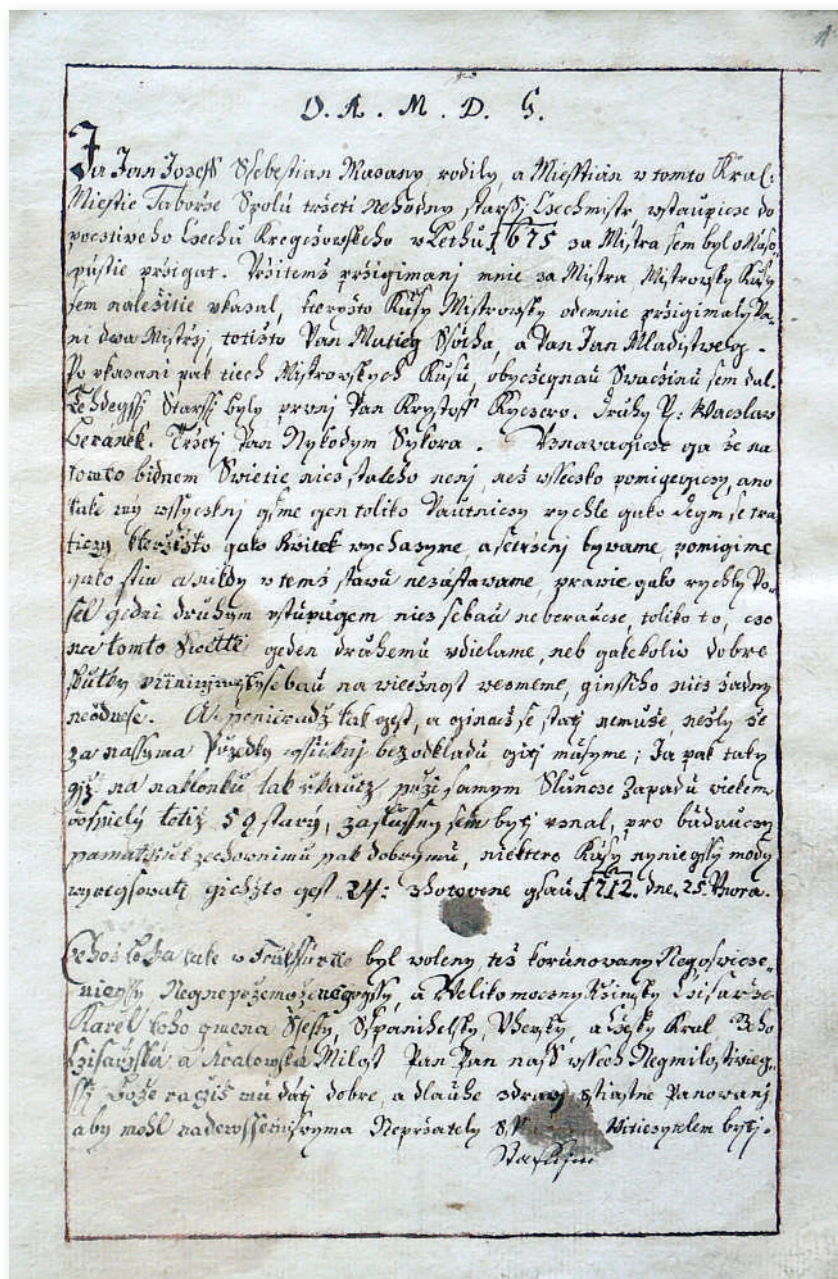 O. A. M. D. G.
Ja Jan Jozeff Ssebestian Mazany rodily, a Miesstian v tomto Kral:
Miestie Taborze Spolu trzeti nehodny starssi Czechmistr, vstaupicze do
pocztiveho Czechu Kregczowskeho v Lethu 1675 za Mistra sem byl o Maso-
pustie przigat. Przitemz przigimanj mnie za Mistra Mistrowsky Kusy
sem nalezitie vkazal, kteryzto Kusy Mistrowsky odemnie przigimaly Pa-
ni dwa Mistrzj, totizto Pan Matieg Ssocha, a Pan Jan Mladistweg.
Po vkazani pak tiech Mistrowskych Kusu, obyczegnau Swaczinu sem dal.
Tehdegssj Starssj byly prvnj Pan Krystoff Kyczero. Druhy P: Waczlaw
Beranek. Trzetj Pan Nykodym Sykora. Vznavagicze ga ze na
tomto bidnem Swietie nicz staleho nenj, nez wssecko pomigegiczy, ano
take my wssyckni gsme gen toliko Pautniczy rychle gako degm se tra-
ticzy, kterzizto gako kwitek wychazyme, a setrzeni bywame, pomigime
gako stin a nikdy v temz stawu nezustawame, prawie gako rychly Po-
sel gedni druhym vstupugem nicz sebau neberaucze, toliko to, czo
na tomto Swiettie geden druhemu vdielame, neb gakekoliw dobre
skutky sebau na wiecznost wezmeme, ginssiho nicz zadny
neodnese. A poniewadz tak gest, a ginacz se statj nemuze, nezly ze
za nassyma Przedky wssicknj bez odkladu gitj musyme; Ja pak taky
giz na naklonku tak rzkaucz przi samym Slunce Zapadu wiekem
dospiely totiz 59 stary, za slussny sem bytj vznal, pro budauczy
pamatku k zachownimu pak dobrymu, niektere Kusy nyniegssy mody
wyregsowatj gichzto gest 24: zhotovene gsau 1712. dne. 25. Vnora.
Tehoz Roku take w Frankfurtie byl woleny, tez korunowany Negoswicze-
niegssy Negneprzemozenegssy, a Welikomoczny Rzimsky Czisarz
Karel toho gmena Ssesty, Sspanihelsky, Vhersky, a Czesky Kral Geho
Czisarzska a Kralowska Milost Pan Pan nass wssech Negmilostiwieg-
ssj Boze racziz mu dati dobre, a dlauhe zdravj sstiastne Panowanj
aby mohl nade wssemi swyma Neprzately Witiezytelem bytj.